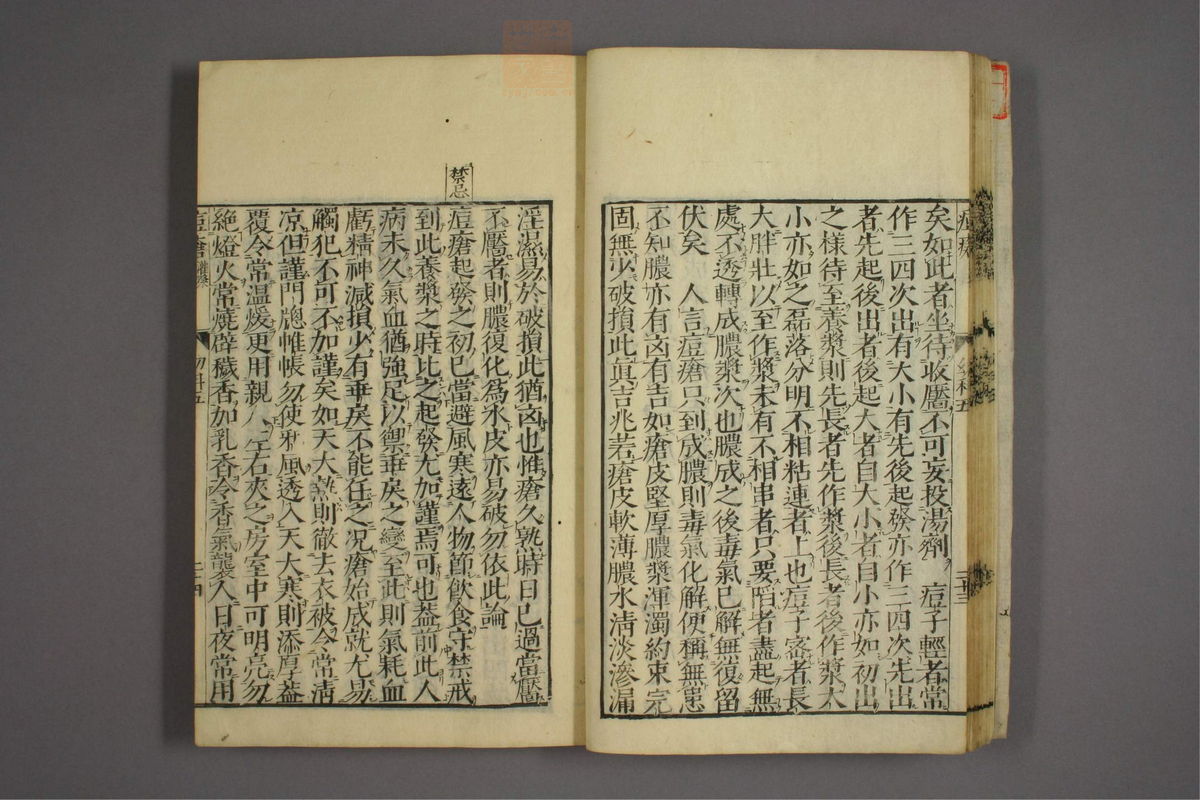 痘瘡
幼科五
二十三
矣如此者坐待收靨不可妄投湯劑　痘子輕者常
作三四次出有大小有先後起發亦作三四次先出
者先起後出者後起大者自大小者自小亦如初出
之樣待至養漿則先長者先作漿後長者後作漿大
小亦如之磊落分明不相粘連者上也痘子密者長
大胖壯以至作漿未有不相串者只要陷者盡起無
處不透轉成膿漿次也膿成之後毒氣已解無復留
伏矣　人言痘瘡只到成膿則毒氣化解便稱無恙
不知膿亦有凶有吉如瘡皮堅厚膿漿渾濁約束完
固無少破損此眞吉兆若瘡皮軟薄膿水淸淡滲漏
淫濕易於破損此猶凶也惟瘡久熟時日已過當靨
不靨者則膿復化爲水皮亦易破勿依此論
禁忌
痘瘡起發之初已當避風寒遠人物節飮食守禁戒
到此養漿之時比之起發尤加謹焉可也蓋前此人
病未久氣血猶強足以禦乖戾之變至此則氣耗血
虧精神減損少有乖戾不能任之况瘡始成就尤易
觸犯不可不加謹矣如天大熱則徹去衣被令常淸
凉但謹門牕帷帳勿使邪風透入天大寒則添厚蓋
覆令常温煖更用親人左右夾之房室中可明亮勿
絶燈火常燒辟穢香加乳香令香氣襲人日夜常用
痘瘡
幼科五
二十四